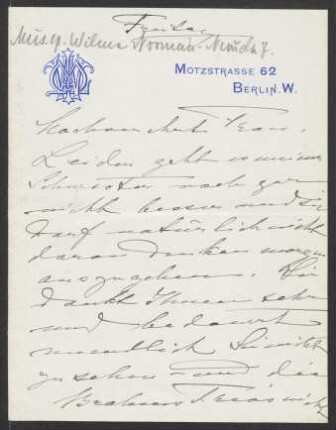 Freitag
Mus. ep. Wilma Norman-Neruda 7.
MOTZSTRASSE 62
BERLIN. W.
Hochverehrte Frau.
Leider geht es meiner
Schwester noch gar
nicht besser und sie
darf natürlich nicht
daran denken morgen
auszugehen. Sie
dankt Ihnen sehr
und bedauert
unendlich Sie nicht
zu sehen und die
Brahms Trios nicht